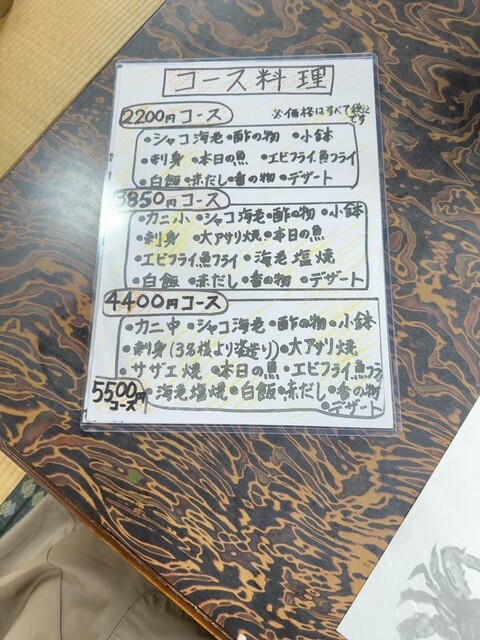 コース料理
2200円コース ※価格はすべて税込です
•シャコ海老 •酢の物 •小鉢
•刺身 •本日の魚 •エビフライ魚フライ
•白飯 •赤だし •香の物 •デザート
3850円コース
•カニ小 •シャコ海老 •酢の物 •小鉢
•刺身 大アサリ焼 •本日の魚
•エビフライ魚フライ •海老塩焼
•白飯 •赤だし •香の物 •デザート
4400円コース
•カニ中 •シャコ海老 •酢の物 •小鉢
•刺身(3名様より姿造り) •大アサリ焼
•サザエ焼 •本日の魚 •エビフライ魚フライ
5500円コース
•海老塩焼 •白飯 •赤だし •香の物
•デザート